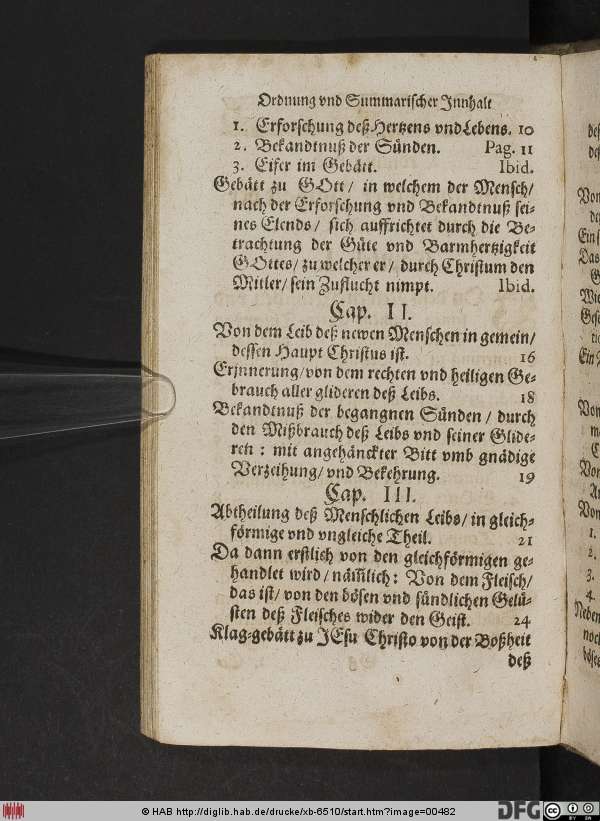 Ordnung vnd Summarischer Innhalt
1. Erforschung deß Hertzens vnd Lebens. 10
2. Bekandtnuß der Sünden. Pag. 11
3. Eifer im Gebätt. Ibid.
Gebätt zu GOtt / in welchem der Mensch/
nach der Erforschung vnd Bekandtnuß sei-
nes Elends / sich auffrichtet durch die Be-
trachtung der Güte vnd Barmhertzigkeit
GOttes/ zu welcher er / durch Christum den
Mitler/ sein Zuflucht nimpt. Ibid.
Cap. II.
Von dem Leib deß newen Menschen in gemein/
dessen Haupt Christus ist. 16
Erjnnerung/ von dem rechten vnd heiligen Ge-
brauch aller glideren deß Leibs. 18
Bekandtnuß der begangnen Sünden / durch
den Mißbrauch deß Leibs vnd seiner Glide-
ren : mit angehänckter Bitt vmb gnädige
Verzeihung/ vnd Bekehrung. 19
Cap. III.
Abtheilung deß Menschlichen Leibs/ in gleich-
förmige vnd vngleiche Theil. 21
Da dann erstlich von den gleichförmigen ge-
handlet wird / nämlich : Von dem Fleisch/
das ist/ von den bösen vnd sündlichen Gelü-
sten deß Fleisches wider den Geist. 24
Klag-gebätt zu JEsu Christo von der Boßheit
deß
© HAB http://diglib.hab.de/drucke/xb-6510/start.htm?image=00482
DFG